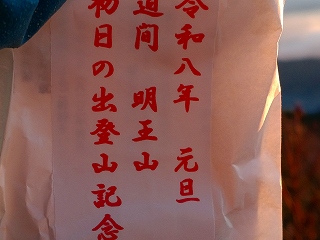 令和八年 元旦
迫間 明王山
初日の出登山記念